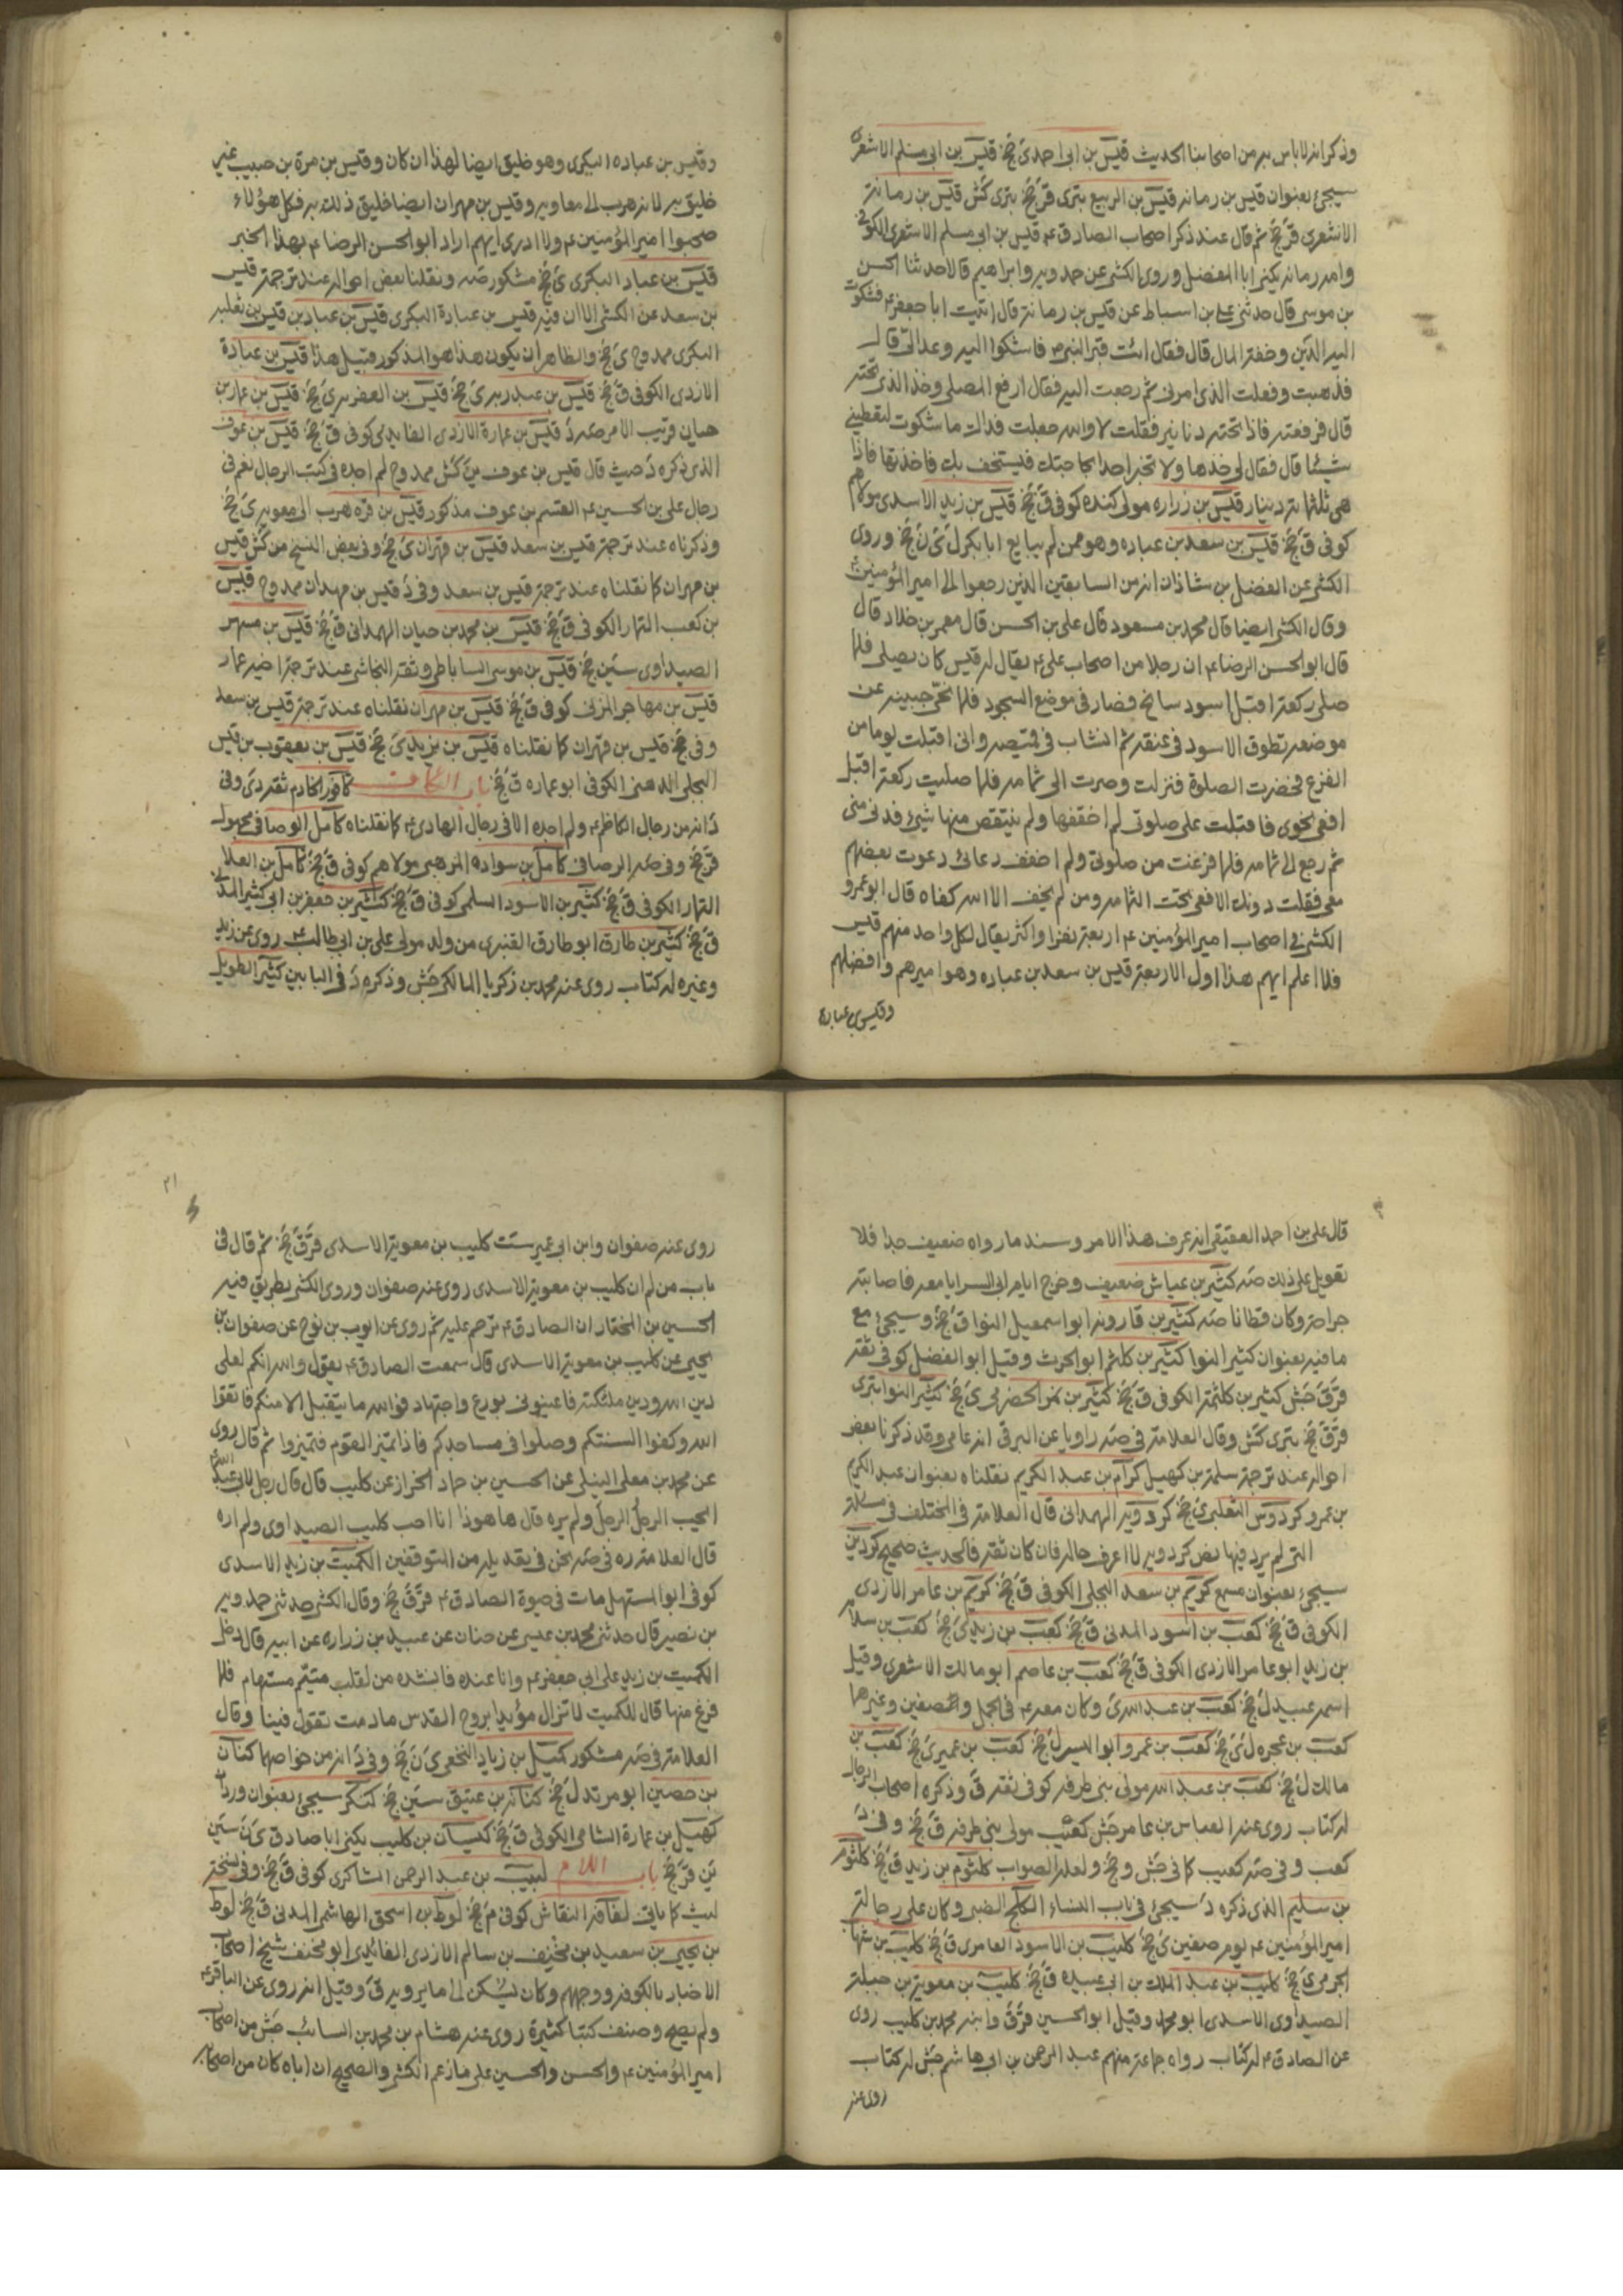 وذكر انه لا باس به من اصحابنا الحديث قيس بن ابى احمد ى جخ قيس بن ابى مسلم الاشعرى
سيجئ بعنوان قيس بن رمانه قيس بن الربيع بترى قر جخ بترى كش قيس بن رمانة
الاشعرى قر جخ ثم قال عند ذكر اصحاب الصادق ع قيس بن ابى مسلم الاشعرى الكوفى
وامه رمانه يكنى ابا المفضل وروى الكشى عن حمدويه وابراهيم قالا حدثنا الحسن
بن موسى قال حدثنى على بن اسباط عن قيس بن رمانة قال اتيت ابا جعفر ع فشكوت
اليه الدين وخفة المال قال فقال ائت قبر النبى ص فاشكوا اليه وعد الىّ قال
فذهبت وفعلت الذى امرنى ثم رجعت اليه فقال ارفع المصلى وخذ الذى تحته
قال فرفعته فاذا تحته دنانير فقلت لا والله جعلت فداك ما شكوت لتعطينى
شيئا قال فقال لى خذها ولا تخبر احدا بحاجتك فيستخف بك فاخذتها فاذا
هى ثلثمائة دينار قيس بن زراره مولى كنده كوفى ق جخ قيس بن زيد الاسدى مولاهم
كوفى ق جخ قيس بن سعد بن عباده وهو ممن لم يبايع ابا بكر ل ى ن جخ وروى
الكشى عن الفضل بن شاذان انه من السابقين الذين رجعوا الى امير المؤمنين ع
وقال الكشى ايضا قال محمد بن مسعود قال على بن الحسن قال معمر بن خلاد قال
قال ابو الحسن الرضا ع ان رجلا من اصحاب على ع يقال له قيس كان يصلى فلما
صلى ركعة اقبل اسود سالخ فصار فى موضع السجود فلما نحى جبينه عن
موضعه تطوق الاسود فى عنقه ثم انساب فى قميصه وانى اقبلت يوما من
الفزع فحضرت الصلوة فنزلت وصرت الى ثمامه فلما صليت ركعة اقبل
افعى نحوى فاقبلت على صلوتى لم اخففها ولم ينتقص منها شيئ فدنى منى
ثم رجع الى ثمامه فلما فرغت من صلوتى ولم اخفف دعائى دعوت بعضهم
معى فقلت دونك الافعى تحت الثمامه ومن لم يخف الا الله كفاه قال ابو عمرو
الكشى فى اصحاب امير المؤمنين ع اربعة نفر او اكثر يقال لكل واحد منهم قيس
فلا اعلم ايهم هذا اول الاربعة قيس بن سعد بن عباده وهو اميرهم وافضلهم
وقيس بن عباده
وقيس بن عباده البكرى وهو خليق ايضا لهذا ان كان وقيس بن مرة بن حبيب غير
خليق به لانه هرب الى معاويه وقيس بن مهران ايضا خليق ذلك به فكل هؤلاء
صحبوا امير المؤمنين ع ولا ادرى ايهم اراد ابو الحسن الرضا ع بهذا الخبر
قيس بن عباد البكرى ى جخ مشكور صه ونقلنا بعض احواله عند ترجمة قيس
بن سعد عن الكشى الا ان فيه قيس بن عبادة البكرى قيس بن عباد بن قيس بن ثعلبه
البكرى ممدوح ى جخ والظاهر ان يكون هذا هو المذكور قبيل هذا قيس بن عبادة
الازدى الكوفى ق جخ قيس بن عبد ربه ى جخ قيس بن العقربه ى جخ قيس بن عمار بن
حيان قريب الامر صه د قيس بن عمارة الازدى الغايدى كوفى ق جخ قيس بن عوف
الذى ذكره د حيث قال قيس بن عوف ين كش ممدوح لم اجده فى كتب الرجال نعم فى
رجال على بن الحسين ع القسم بن عوف مذكور قيس بن قره هرب الى معويه ى جخ
وذكرناه عند ترجمة قيس بن سعد قيس بن قهران ى جخ وفى بعض النسخ من كش قيس
بن مهران كما نقلناه عند ترجمة قيس بن سعد وفى د قيس بن مهدان ممدوح قيس
بن كعب التمار الكوفى ق جخ قيس بن محمد بن حيان الهمدانى ق جخ قيس بن مسهر
الصيداوى سين جخ قيس بن موسى الساباطى وثقه النجاشى عند ترجمة اخيه عمار
قيس بن مهاجر المزنى كوفى ق جخ قيس بن مهران نقلناه عند ترجمة قيس بن سعد
وفى جخ قيس بن قهران كما نقلناه قيس بن يزيد ى جخ قيس بن يعقوب بن قيس
البجلى الدهنى الكوفى ابو عماره ق جخ باب الكاف كافور الخادم ثقه دى وفى
د انه من رجال الكاظم ع ولم اجده الا فى رجال الهادى ع كما نقلناه كامل الوصافى مجهول
قر جخ وفى صه الرصافى كامل بن سوادة الزهيرى مولاهم كوفى ق جخ كامل بن العلا
التمار الكوفى ق جخ كثير بن الاسود السلمى كوفى ق جخ كثير بن جعفر بن ابى كثير المدنى
ق جخ كثير بن طارق ابو طارق القنبرى من ولد مولى على بن ابى طالب ع روى عن زيد
وغيره له كتاب روى عنه محمد بن زكريا المالكى جش وذكره د فى البابين كثير الطويل
قال على بن احمد العقيقى انه عرف هذا الامر وسند ما رواه ضعيف جدا فلا
تعويل على ذلك صه كثير بن عياش ضعيف وخرج ايام ابى السرايا معه فاصابته
جراحة وكان قطانا صه كثير بن قاروند ابو اسمعيل النوا ق جخ وسيجئ مع
ما فيه بعنوان كثير النوا كثير بن كلثم ابو الحرث وقيل ابو الفضل كوفى ثقة
قر ق جش كثير بن كلثمة الكوفى ق جخ كثير بن نمر الحضرمى ى جخ كثير النوا بترى
قر ق جخ بترى كش وقال العلامة فى صه راويا عن البرقى انه عامى وقد ذكرنا بعض
احواله عند ترجمة سلمة بن كهيل كرام بن عبد الكريم نقلناه بعنوان عبد الكريم
بن عمرو كردوس التغلبى ى جخ كردويه الهمدانى قال العلامة فى المختلف فى مسئلة
التى لم يرد فيها نص كردويه لا اعرف حاله فان كان ثقة فالحديث صحيح كردين
سيجئ بعنوان مسمع كريم بن سعد البجلى الكوفى ق جخ كريم بن عامر الازدى
الكوفى ق جخ كعب بن اسود المدنى ق جخ كعب بن زيد ى جخ كعب بن سلامه
بن زيد ابو عامر الازدى الكوفى ق جخ كعب بن عاصم ابو مالك الاشعرى وقيل
اسمه عبيد ل جخ كعب بن عبد الله ى وكان معه ع فى الجمل والصفين وغيرها
كعب بن عجره ل ى جخ كعب بن عمرو ابو اليسر ل جخ كعب بن عمير ى جخ كعب بن
مالك ل جخ كعب بن عبد الله مولى بنى طرفه كوفى ثقه ق وذكره اصحاب الرجال
له كتاب روى عنه العباس بن عامر جش كعيب مولى بنى طرفه ق جخ وفى د
كعب وفى صه كعيب كما فى جش وجخ ولعله الصواب كلثوم بن زيد ق جخ كلثوم
بن سليم الذى ذكره د سيجئ فى باب النساء الكلح الضبى وكان على رجالة
امير المؤمنين ع يوم صفين ى جخ كليب بن الاسود العامرى ق جخ كليب بن شهاب
الجرمى ى جخ كليب بن عبد الملك بن ابى عبيده ق جخ كليب بن معوية بن جبلة
الصيداوى الاسدى ابو محمد وقيل ابو الحسين قر ق وابنه محمد بن كليب روى
عن الصادق ع له كتاب رواه جماعة منهم عبد الرحمن بن ابى هاشم جش له كتاب
روى عنه
٢١
روى عنه صفوان وابن ابى عمير ست كليب بن معوية الاسدى قر ق جخ ثم قال فى
باب من لم ان كليب بن معوية الاسدى روى عنه صفوان وروى الكشى بطريق فيه
الحسين بن المختار ان الصادق ع ترحم عليه ثم روى عن ايوب بن نوح عن صفوان بن
يحيى عن كليب بن معوية الاسدى قال سمعت الصادق ع يقول والله انكم لعلى
دين الله ودين ملئكته فاعينونى بورع واجتهاد فوالله ما يتقبل الا منكم فاتقوا
الله وكفوا السنتكم وصلوا فى مساجدكم فاذا تميز القوم فتميزوا ثم قال روى
عن محمد بن معلى النيلى عن الحسين بن حماد الخراز عن كليب قال قال رجل لابى عبد الله ع
ايحب الرجل الرجل ولم يره قال ها هو ذا انا احب كليب الصيداوى ولم اره
قال العلامة ره فى صه نحن فى تعديله من المتوقفين الكميت بن زيد الاسدى
كوفى ابو المستهل مات فى حيوة الصادق ع قر ق جخ وقال الكشى حدثنى حمدويه
بن نصير قال حدثنى محمد بن عيسى عن حنان عن عبيد بن زراره عن ابيه قال دخل
الكميت بن زيد على ابى جعفر ع وانا عنده فانشده من لقلب متيم مستهام فلما
فرغ منها قال للكميت لا تزال مؤيدا بروح القدس مادمت تقول فينا وقال
العلامة فى صه مشكور كميل بن زياد النخعى ى ن جخ وفى د انه من خواصهما كناز
بن حصين ابو مرثد ل جخ كنانة بن عتيق سين جخ كنكر سيجئ بعنوان وردان
كهيل بن عمارة الشامى الكوفى ق جخ كيسان بن كليب يكنى ابا صادق ى ن سين
ين قر جخ باب اللام لبيب بن عبد الرحمن الشاكرى كوفى ق جخ وفى نسخة
ليث كما ياتى لفافة النقاش كوفى م جخ لوط بن اسحق الهاشمى المدنى ق جخ لوط
بن يحيى بن سعيد بن مخنف بن سالم الازدى الغائدى ابو مخنف شيخ اصحاب
الاخبار بالكوفه ووجههم وكان يسكن الى ما يرويه ق وقيل انه روى عن الباقر ع
ولم يصح وصنف كتبا كثيرة روى عنه هشام بن محمد بن السائب جش من اصحاب
امير المؤمنين ع والحسن والحسين على ما زعم الكشى والصحيح ان اباه كان من اصحابه